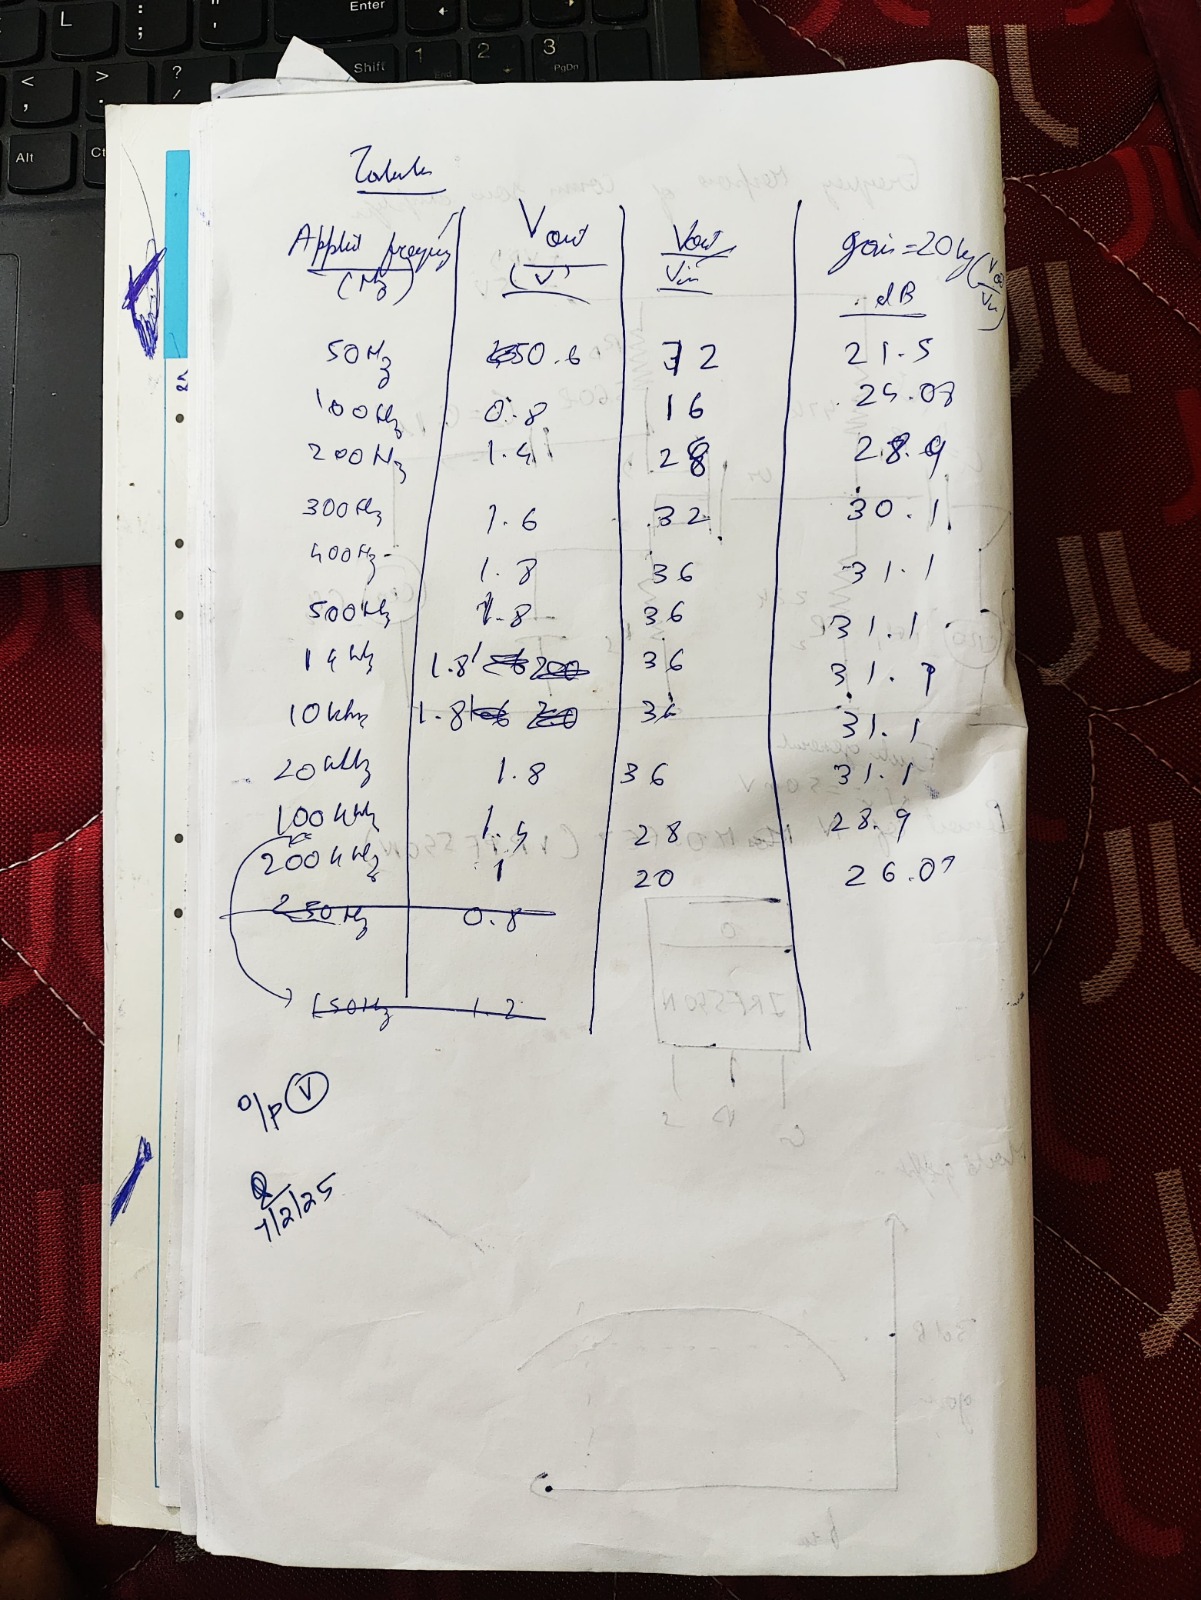 L
;
Enter
Shift
1
End
2
3
PgDn
<
,
>
.
?
/
Alt
Ct
Applied frequency | Vout | Vout/Vin | gain = 20log(Vout/Vin)
(Hz) | (V) | dB
50Hz 0.6 12 21.5
100Hz 0.8 16 24.08
200Hz 1.4 28 28.9
300Hz 1.6 32 30.1
400Hz 1.8 36 31.1
500Hz 1.8 36 31.1
1kHz 1.8 36 31.1
10khz 1.8 36 31.1
20kHz 1.8 36 31.1
100kHz 1.4 28 28.9
200kHz 1 20 26.02
250Hz 0.8
150Hz 1.2
o/p V
7/2/25